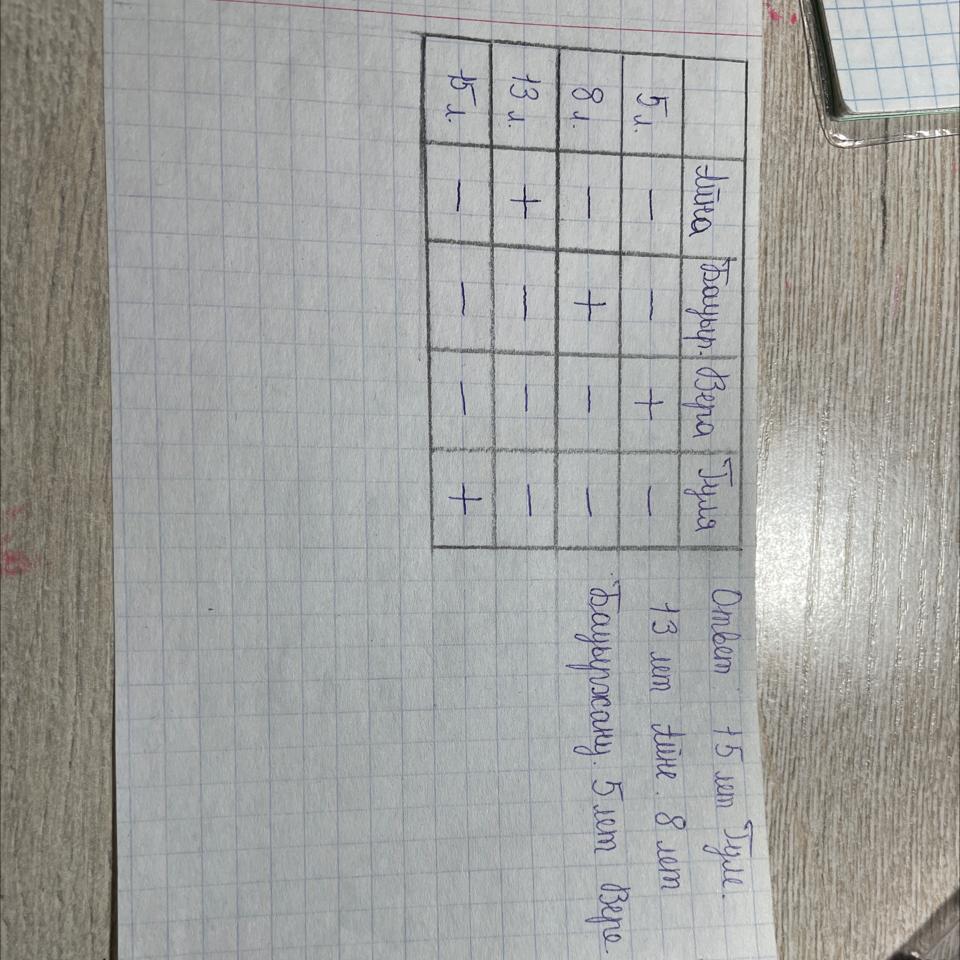 Айна Бауыр. Вера Гуля
5 л. — — + —
8 л. — + — —
13 л. + — — —
15 л. — — — +
Ответ 15 лет Гуле.
13 лет Айне. 8 лет
Бауыржану. 5 лет Вере